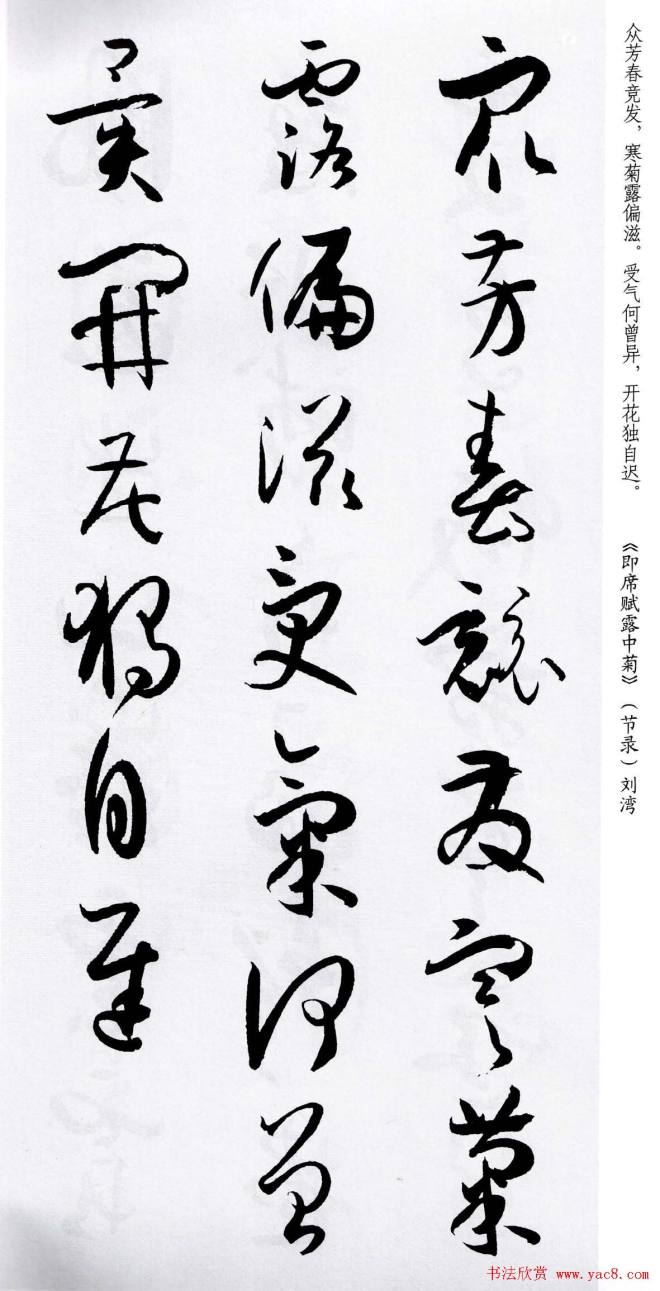 众芳春竞发，寒菊露偏滋。受气何曾异，开花独自迟。
《即席赋露中菊》（节录）刘湾
眾芳春競發寒菊
露偏滋受氣何曾
異開花獨自遲
书法欣赏 www.yac8.com